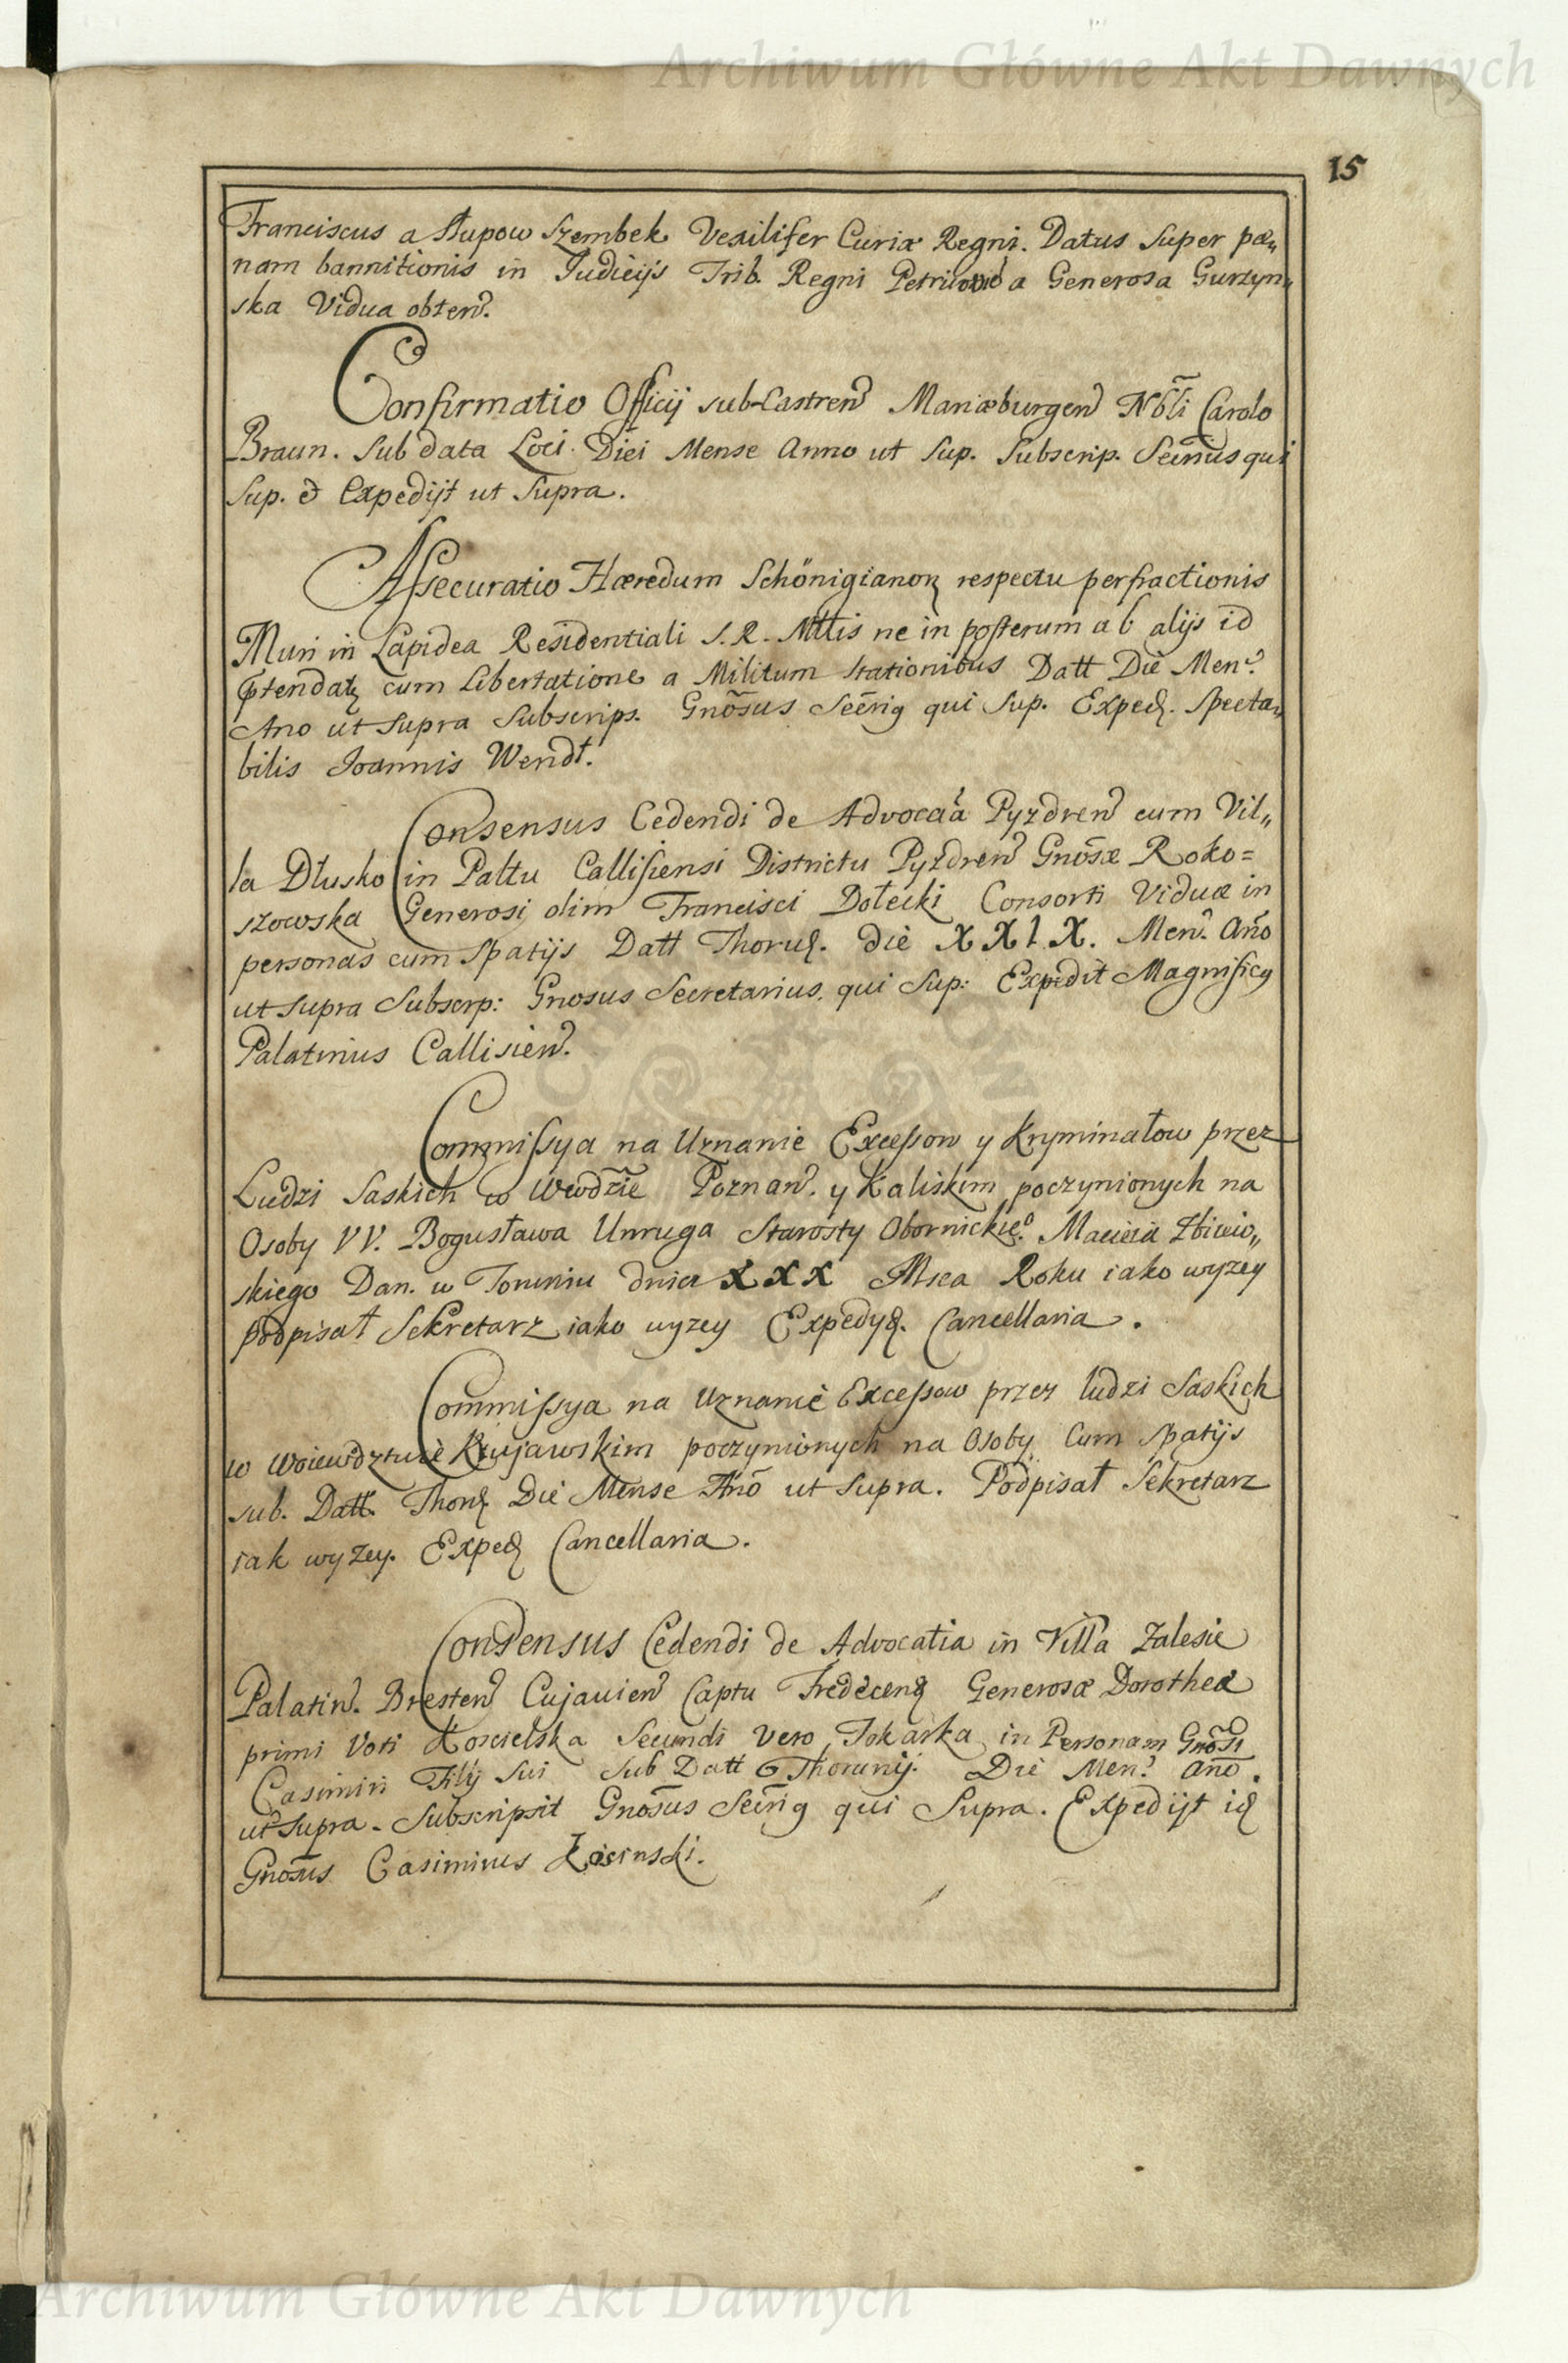 Archiwum Główne Akt Dawnych
15
Franciscus a Słupow Szembek Vexilifer Curiæ Regni. Datus Super pæ„
nam bannitionis in Judicijs Trib. Regni a Generosa Gurzyn„
ska Vidua obten.
Confirmatio Officij sub-Castren Mariæburgen Nbli Carolo
Braun. Sub data Loci Diei Mense Anno ut Sup. Subscrip. qui
Sup. & Expedijt ut Supra.
Assecuratio Hæredum Schönigianor respectu perfractionis
Muri in Lapidea Residentiali S. R. Mttis ne in posterum ab alijs id
cum Libertatione a Militum Stationibus Datt Die Men.
Ano ut Supra Subscrips. Gnosus qui Sup. Exped. Specta„
bilis Joannis Wendt.
Consensus Cedendi de Advocaa Pyzdren cum Vil„
la Dłusko in Paltu Callisiensi Districtu Pyzdren Gnosæ Roko=
szowska Generosi olim Francisci Dołecki Consorti Viduæ in
personas cum Spatijs Datt Thoru. Die XXIX. Men. Ano
ut Supra Subscrp: Gnosus Secretarius, qui Sup: Expedit Magnificg
Palatinus Callisien.
Commissya na Uznanie Excessow y Kryminałow przez
Ludzi Saskich w Wwdzie Poznan. y Kaliskim poczynionych na
Osoby VV. Bogusława Unruga Starosty Obornickieo. Macieia
skiego Dan. w Toruniu dnia XXX Msca Roku iako wyzey
podpisał Sekretarz iako wyzey Expedy. Cancellaria.
Commissya na Uznanie Excessow przez ludzi Saskich
w Woiewodztwie Kujawskim poczynionych na Osoby Cum Spatijs
sub. Datt. Thor Die Mense Ano ut Supra. Podpisał Sekretarz
iak wyzey. Exped Cancellaria.
Consensus Cedendi de Advocatia in Villa Zalesie
Palatin. Bresten Cujavien Captu Generosæ Dorothea
primi Voti Koscielska Secundi Vero Tokarka in Personam Gnosi
Casimiri Filij Sui Sub Datt Thorunij. Die Men. Ano.
ut Supra. Subscripsit Gnosus qui Supra. Expedijt id
Gnosus Casimirus
Archiwum Główne Akt Dawnych